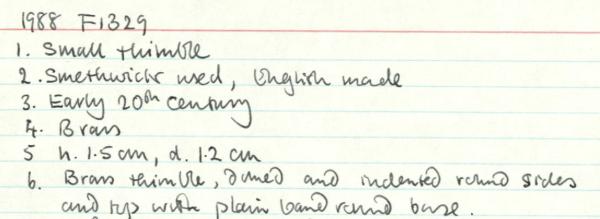 1988 F1329
1. Small thimble
2. Smethwick used, English made
3. Early 20th century
4. Brass
5 h. 1.5 cm, d. 1.2 cm
6. Brass thimble, domed and indented round sides
and top with plain band round base.